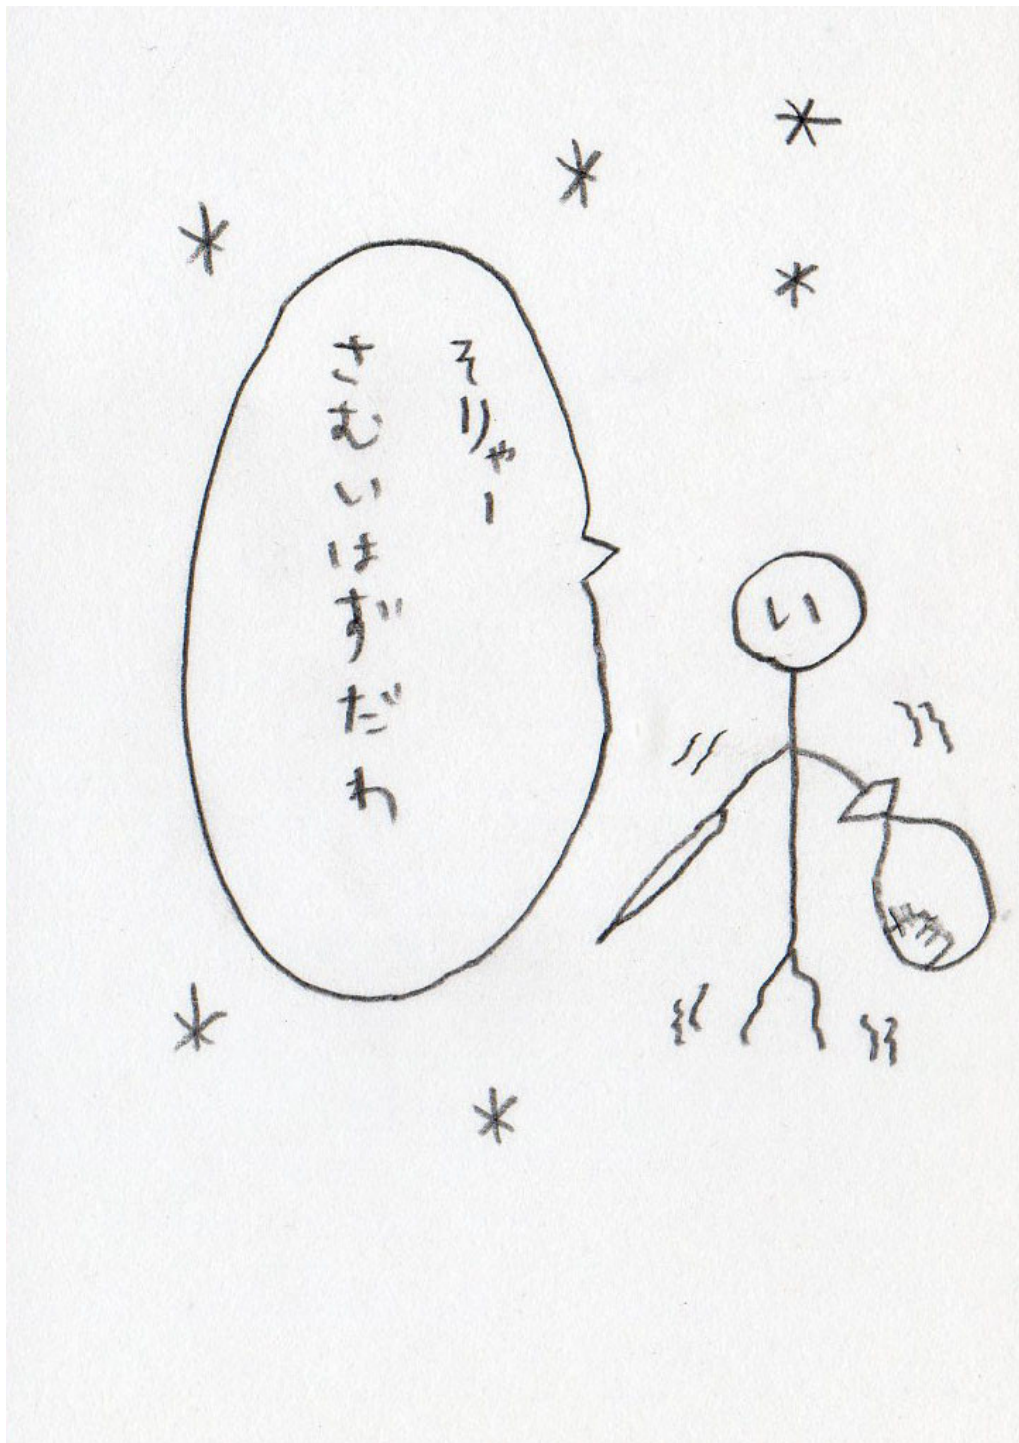 そりゃー
さむいはずだわ
い